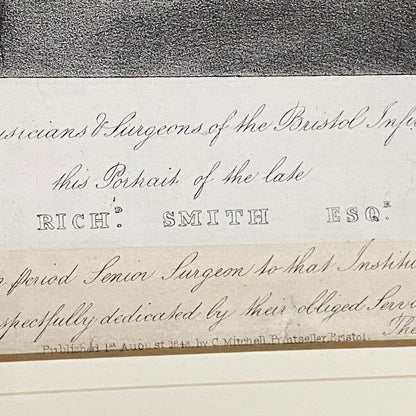 ysicians & Surgeons of the Bristol Infi
this Portrait of the late
RICHD. SMITH ESQR.
period Senior Surgeon to that Institu
spectfully dedicated by their obliged Serv
The
Published 1st August 1843, by C. Mitchell, Printseller, Bristol.